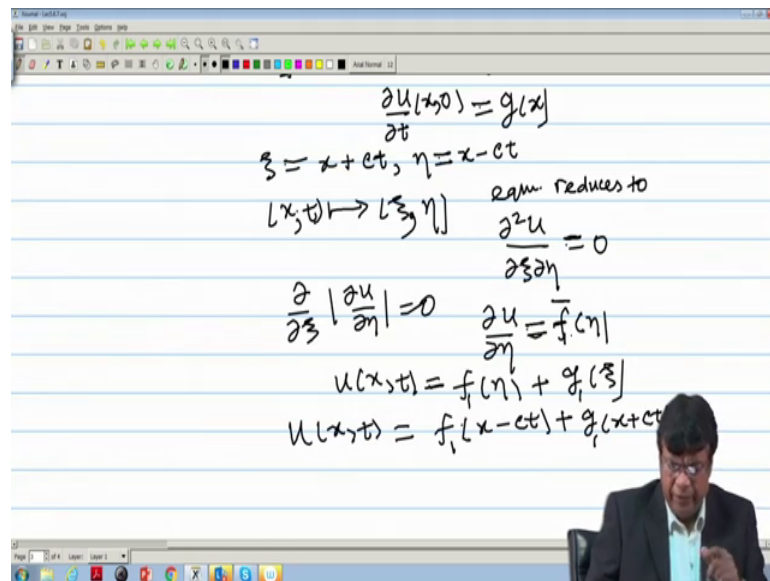 Xournal - Lec5.6.7.xoj
File Edit View Page Tools Options Help
Arial Normal 12
∂u/∂t (x,0) = g(x)
ξ = x + ct, η = x - ct
(x, t) ↦ (ξ, η)
eqn. reduces to
∂²u/∂ξ∂η = 0
∂/∂ξ (∂u/∂η) = 0
∂u/∂η = f̅(η)
u(x,t) = f₁(η) + g₁(ξ)
u(x,t) = f₁(x-ct) + g₁(x+ct
Page 3 of 4 Layer: Layer 1